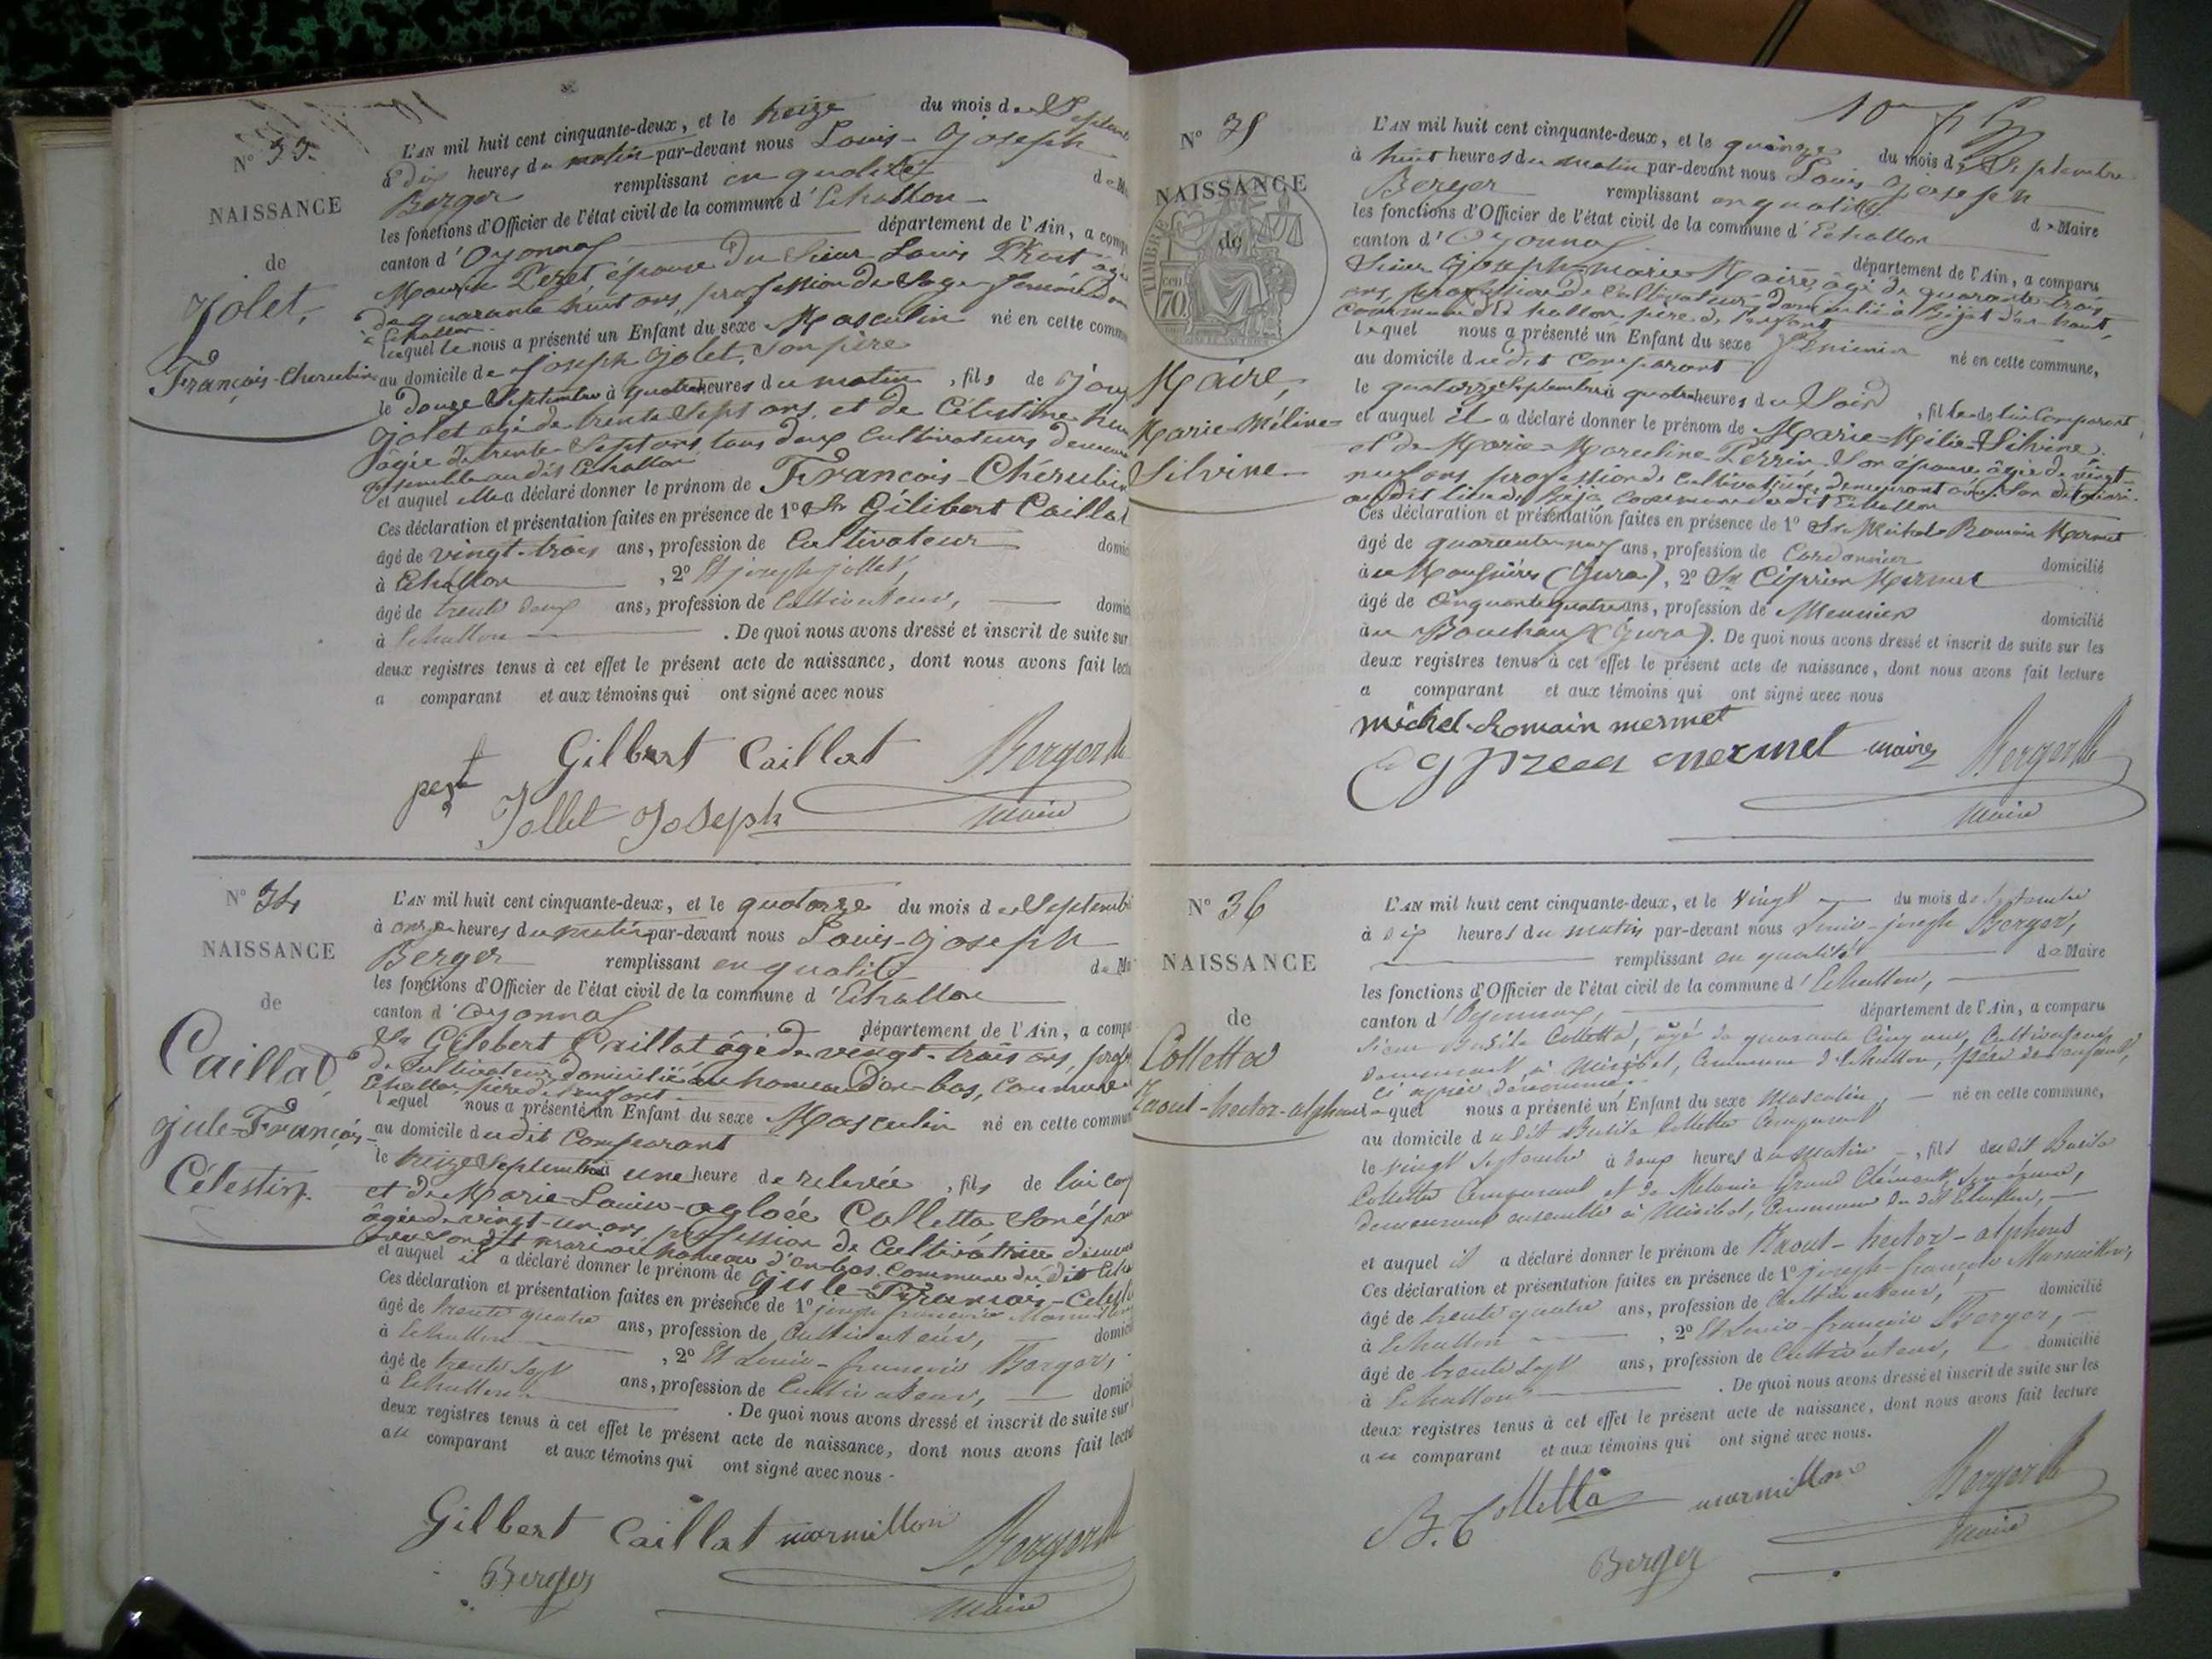 N° 33.
NAISSANCE
de
Jolet,
François-Cherubin
L'AN mil huit cent cinquante-deux, et le treize du mois de Septem
à dix heures du matin par-devant nous Louis-Joseph
Berger remplissant en qualité de M
les fonctions d'Officier de l'état civil de la commune d'Echallon
canton d'Oyonnax département de l'Ain, a comp
épouse du Sieur Louis
de quarante huit ans, profession de Sage-femme
à Echallon
laquelle nous a présenté un Enfant du sexe Masculin né en cette comm
au domicile de Joseph Jolet, son père
le douze Septembre à quatre heures du matin, fils de
Jolet agé de trente Sept ans, et de Célestine
agée de trente Sept ans, tous deux Cultivateurs
ensemble audit Echallon
et auquel elle a déclaré donner le prénom de François-Chérubin
Ces déclaration et présentation faites en présence de 1° Sr Gilibert Caillat
âgé de vingt-trois ans, profession de Cultivateur domic
à Echallon, 2° Et joseph jollet,
âgé de trente deux ans, profession de Cultivateur, domic
à Echallon. De quoi nous avons dressé et inscrit de suite sur
deux registres tenus à cet effet le présent acte de naissance, dont nous avons fait lect
a comparant et aux témoins qui ont signé avec nous
Gilbert Caillat Berger
Jollet Joseph Maire
N° 34
NAISSANCE
de
Caillat,
jule-François-
Célestin
L'AN mil huit cent cinquante-deux, et le quatorze du mois de Septemb
à onze heures du matin par-devant nous Louis-Joseph
Berger remplissant en qualité de M
les fonctions d'Officier de l'état civil de la commune d'Echallon
canton d'Oyonnax département de l'Ain, a comp
Sr Gilebert Caillat âgé de vingt-trois ans, prof
de Cultivateur, domicilié au hameau d'en-bas, Commune
Echallon, père de l'enfant
lequel nous a présenté un Enfant du sexe Masculin né en cette commun
au domicile dudit Comparant
le treize Septembre à une heure de relevée, fils de lui com
et de Marie-Louise-agloée Colletta Son épou
âgée de vingt-un ans, profession de Cultivatrice
avec Son dit mari au hameau d'en-bas, Commune du dit
et auquel il a déclaré donner le prénom de jule-François-Célesti
Ces déclaration et présentation faites en présence de 1° joseph françois
âgé de trente quatre ans, profession de Cultivateur, domici
à Echallon, 2° Et Louis-françois Berger,
âgé de trente Sept ans, profession de Cultivateur, domici
à Echallon. De quoi nous avons dressé et inscrit de suite sur
deux registres tenus à cet effet le présent acte de naissance, dont nous avons fait lect
au comparant et aux témoins qui ont signé avec nous
Gilbert Caillat marmillon Berger
Berger Maire
N° 35
NAISSANCE
de
TIMBRE
70
Maire,
Marie-Méline-
Silvine
L'AN mil huit cent cinquante-deux, et le quinze du mois de Septembre
à huit heures du matin par-devant nous Louis-Joseph
Berger remplissant en qualité de Maire
les fonctions d'Officier de l'état civil de la commune d'Echallon
canton d'Oyonnax département de l'Ain, a comparu
Sieur Joseph-marie Maire, âgé de quarante-trois
ans, profession de Cultivateur domicilié à
commune d'Echallon, père de l'enfant
lequel nous a présenté un Enfant du sexe Féminin né en cette commune,
au domicile dudit Comparant
le quatorze Septembre à quatre heures du Soir, fille de lui Comparant
et auquel il a déclaré donner le prénom de Marie-Mélie-Silvine
et de Marie-Marceline Perrin Son épouse âgée de vingt-
neuf ans, profession de Cultivatrice, demeurant avec Son dit mari
Commune dudit Echallon
Ces déclaration et présentation faites en présence de 1° Sr Michel-Romain Mermet
âgé de quarante-neuf ans, profession de Cordonnier domicilié
(Jura), 2° Sr Ciprien Mermet
âgé de Cinquante quatre ans, profession de Meunier domicilié
au Bouchoux (Jura). De quoi nous avons dressé et inscrit de suite sur les
deux registres tenus à cet effet le présent acte de naissance, dont nous avons fait lecture
a comparant et aux témoins qui ont signé avec nous
michel-Romain mermet
mermet maire Berger
Maire
N° 36
NAISSANCE
de
Colletta
Raoul-hector-alphons
L'AN mil huit cent cinquante-deux, et le vingt du mois de Septembre
à dix heures du matin par-devant nous Louis-joseph Berger,
remplissant en qualité de Maire
les fonctions d'Officier de l'état civil de la commune d'Echallon,
canton d'Oyonnax, département de l'Ain, a comparu
Sieur Basile Colletta, âgé de quarante Cinq ans, Cultivateur,
demeurant à Miribel, Commune d'Echallon, père de l'enfant,
Ci après dénommé.
lequel nous a présenté un Enfant du sexe Masculin, né en cette commune,
au domicile dudit Basile Colletta Comparant
le vingt Septembre à deux heures du matin, fils dudit Basile
Colletta Comparant et de Melanie Grand Clément, Son épouse,
demeurant ensemble à Miribel, Commune du dit Echallon,
et auquel il a déclaré donner le prénom de Raoul-hector-alphons
Ces déclaration et présentation faites en présence de 1° joseph-françois Marmillon,
âgé de trente quatre ans, profession de Cultivateur, domicilié
à Echallon, 2° Et Louis-françois Berger,
âgé de trente Sept ans, profession de Cultivateur, domicilié
à Echallon. De quoi nous avons dressé et inscrit de suite sur les
deux registres tenus à cet effet le présent acte de naissance, dont nous avons fait lecture
au comparant et aux témoins qui ont signé avec nous.
B. Colletta marmillon Berger
Berger Maire